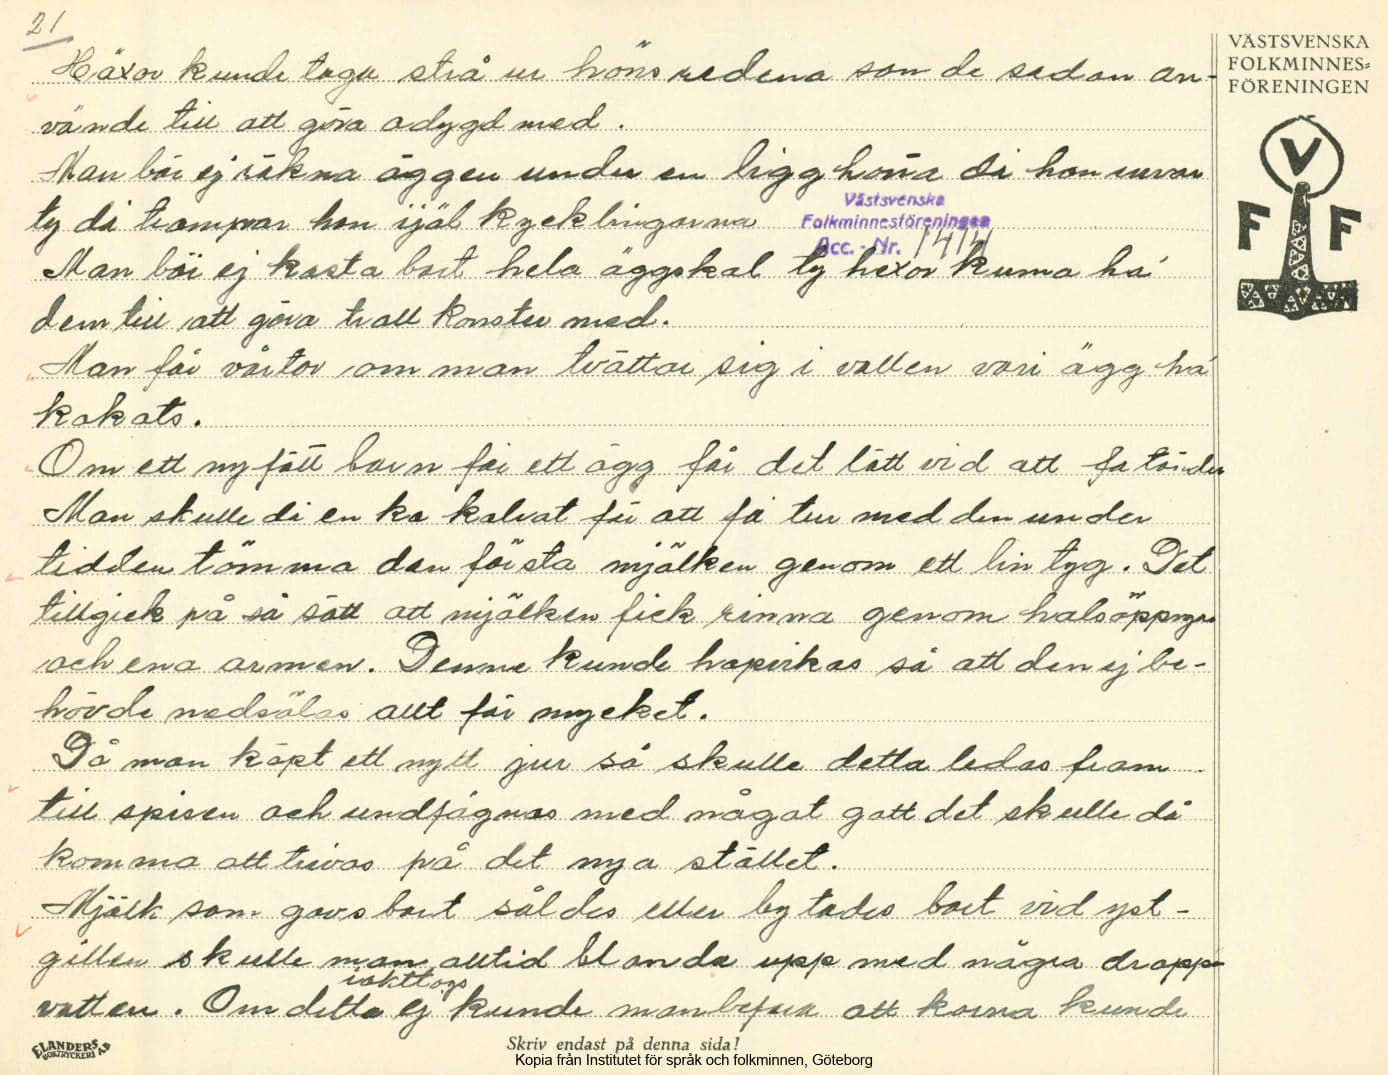 21
Häxor kunde taga strå ur hönsredena som de sedan an-
vände till att göra odygd med.
Man bör ej räkna äggen under en ligghöna di honurvar
ty di trampar hon ijäl kycklingarna
Man bör ej kasta bort hela äggskal ty hexor kunna ha
dem till att göra troll konster med.
Man får vårtor om man tvättar sig i vatten vari ägg ha
kokats.
Om ett nyfött barn får ett ägg får det lätt vid att fa tänder
Man skulle di en ko kalvat för att få tur med den under
tidden tömma den första mjölken genom ett lintyg. Det
tillgick på så sätt att mjölken fick rinna genom halsöppngn
och ena armen. Denne kunde hopvikas så att den ej be-
hövde nedsölas allt för mycket.
Då man köpt ett nytt jur så skulle detta ledas fram
till spisen och undfägnas med något gott det skulle då
komma att trivas på det nya stället.
Mjölk som gavs bort såldes eller bytades bort vid yst-
gillen skulle man alltid blanda upp med några dropp
vatten. Om detta ej iakttogs kunde man befara att korna kunde
Västsvenska
Folkminnesföreningen
Acc. - Nr. 1414
VÄSTSVENSKA
FOLKMINNES=
FÖRENINGEN
V
F F
ELANDERS
BOKTRYCKERI AB
Skriv endast på denna sida!
Kopia från Institutet för språk och folkminnen, Göteborg